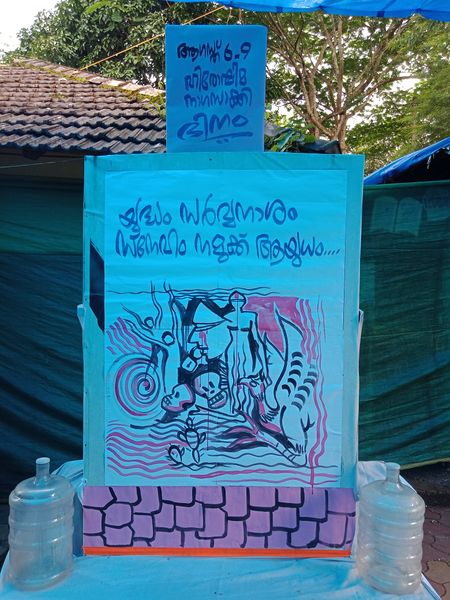 ആഗസ്റ്റ് 6-9
ഹിരോഷിമ
നാഗസാക്കി
ദിനം
യുദ്ധം സർവ്വനാശം
സ്നേഹം നമുക്ക് ആയുധം....